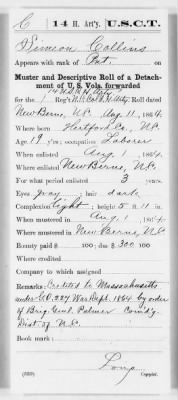 C | 14 H. Art'y. | U.S.C.T.
Simeon Collins
Appears with rank of Pvt.
Muster and Descriptive Roll of a Detach-
ment of U. S. Vols. forwarded
14 U.S.C. H. Arty
for the 1 Reg't N.C. Col'd H. Arty Roll dated
New Berne, N.C. Aug 11, 1864.
Where born Hertford Co., N.C.
Age 19 y'rs; occupation Laborer
When enlisted Aug 1, 1864.
Where enlisted New Berne, N.C.
For what period enlisted 3 years.
Eyes gray; hair dark
Complexion light; height 5 ft. 11 in.
When mustered in Aug 1, 1864.
Where mustered in New Berne, N.C.
Bounty paid $ 100; due $ 300 100
Where credited
Company to which assigned
Remarks: Credited to Massachusetts
under G.O. 227 War Dept. 1864 by order
of Brig. Genl. Palmer Com'd'g
Dist. of N.C.
Book mark:
Copyist.